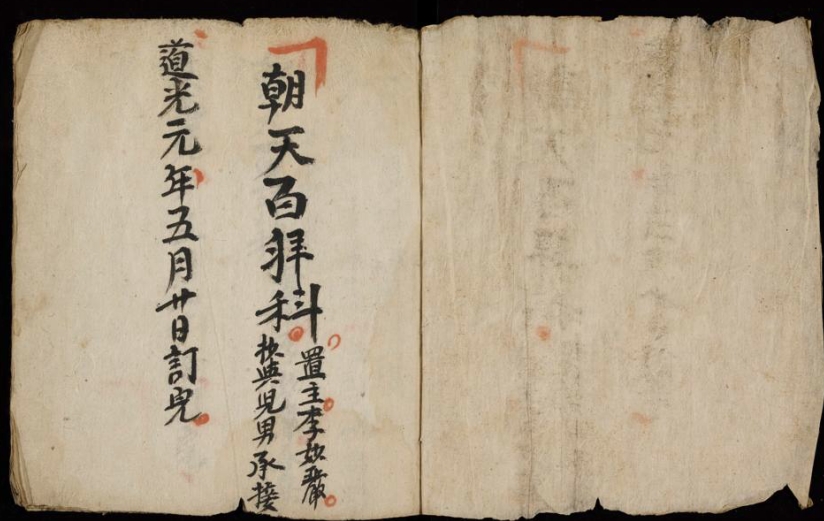 朝天百拜科
置主李如嚴
抄與兒男承接
道光元年五月廿日訂完